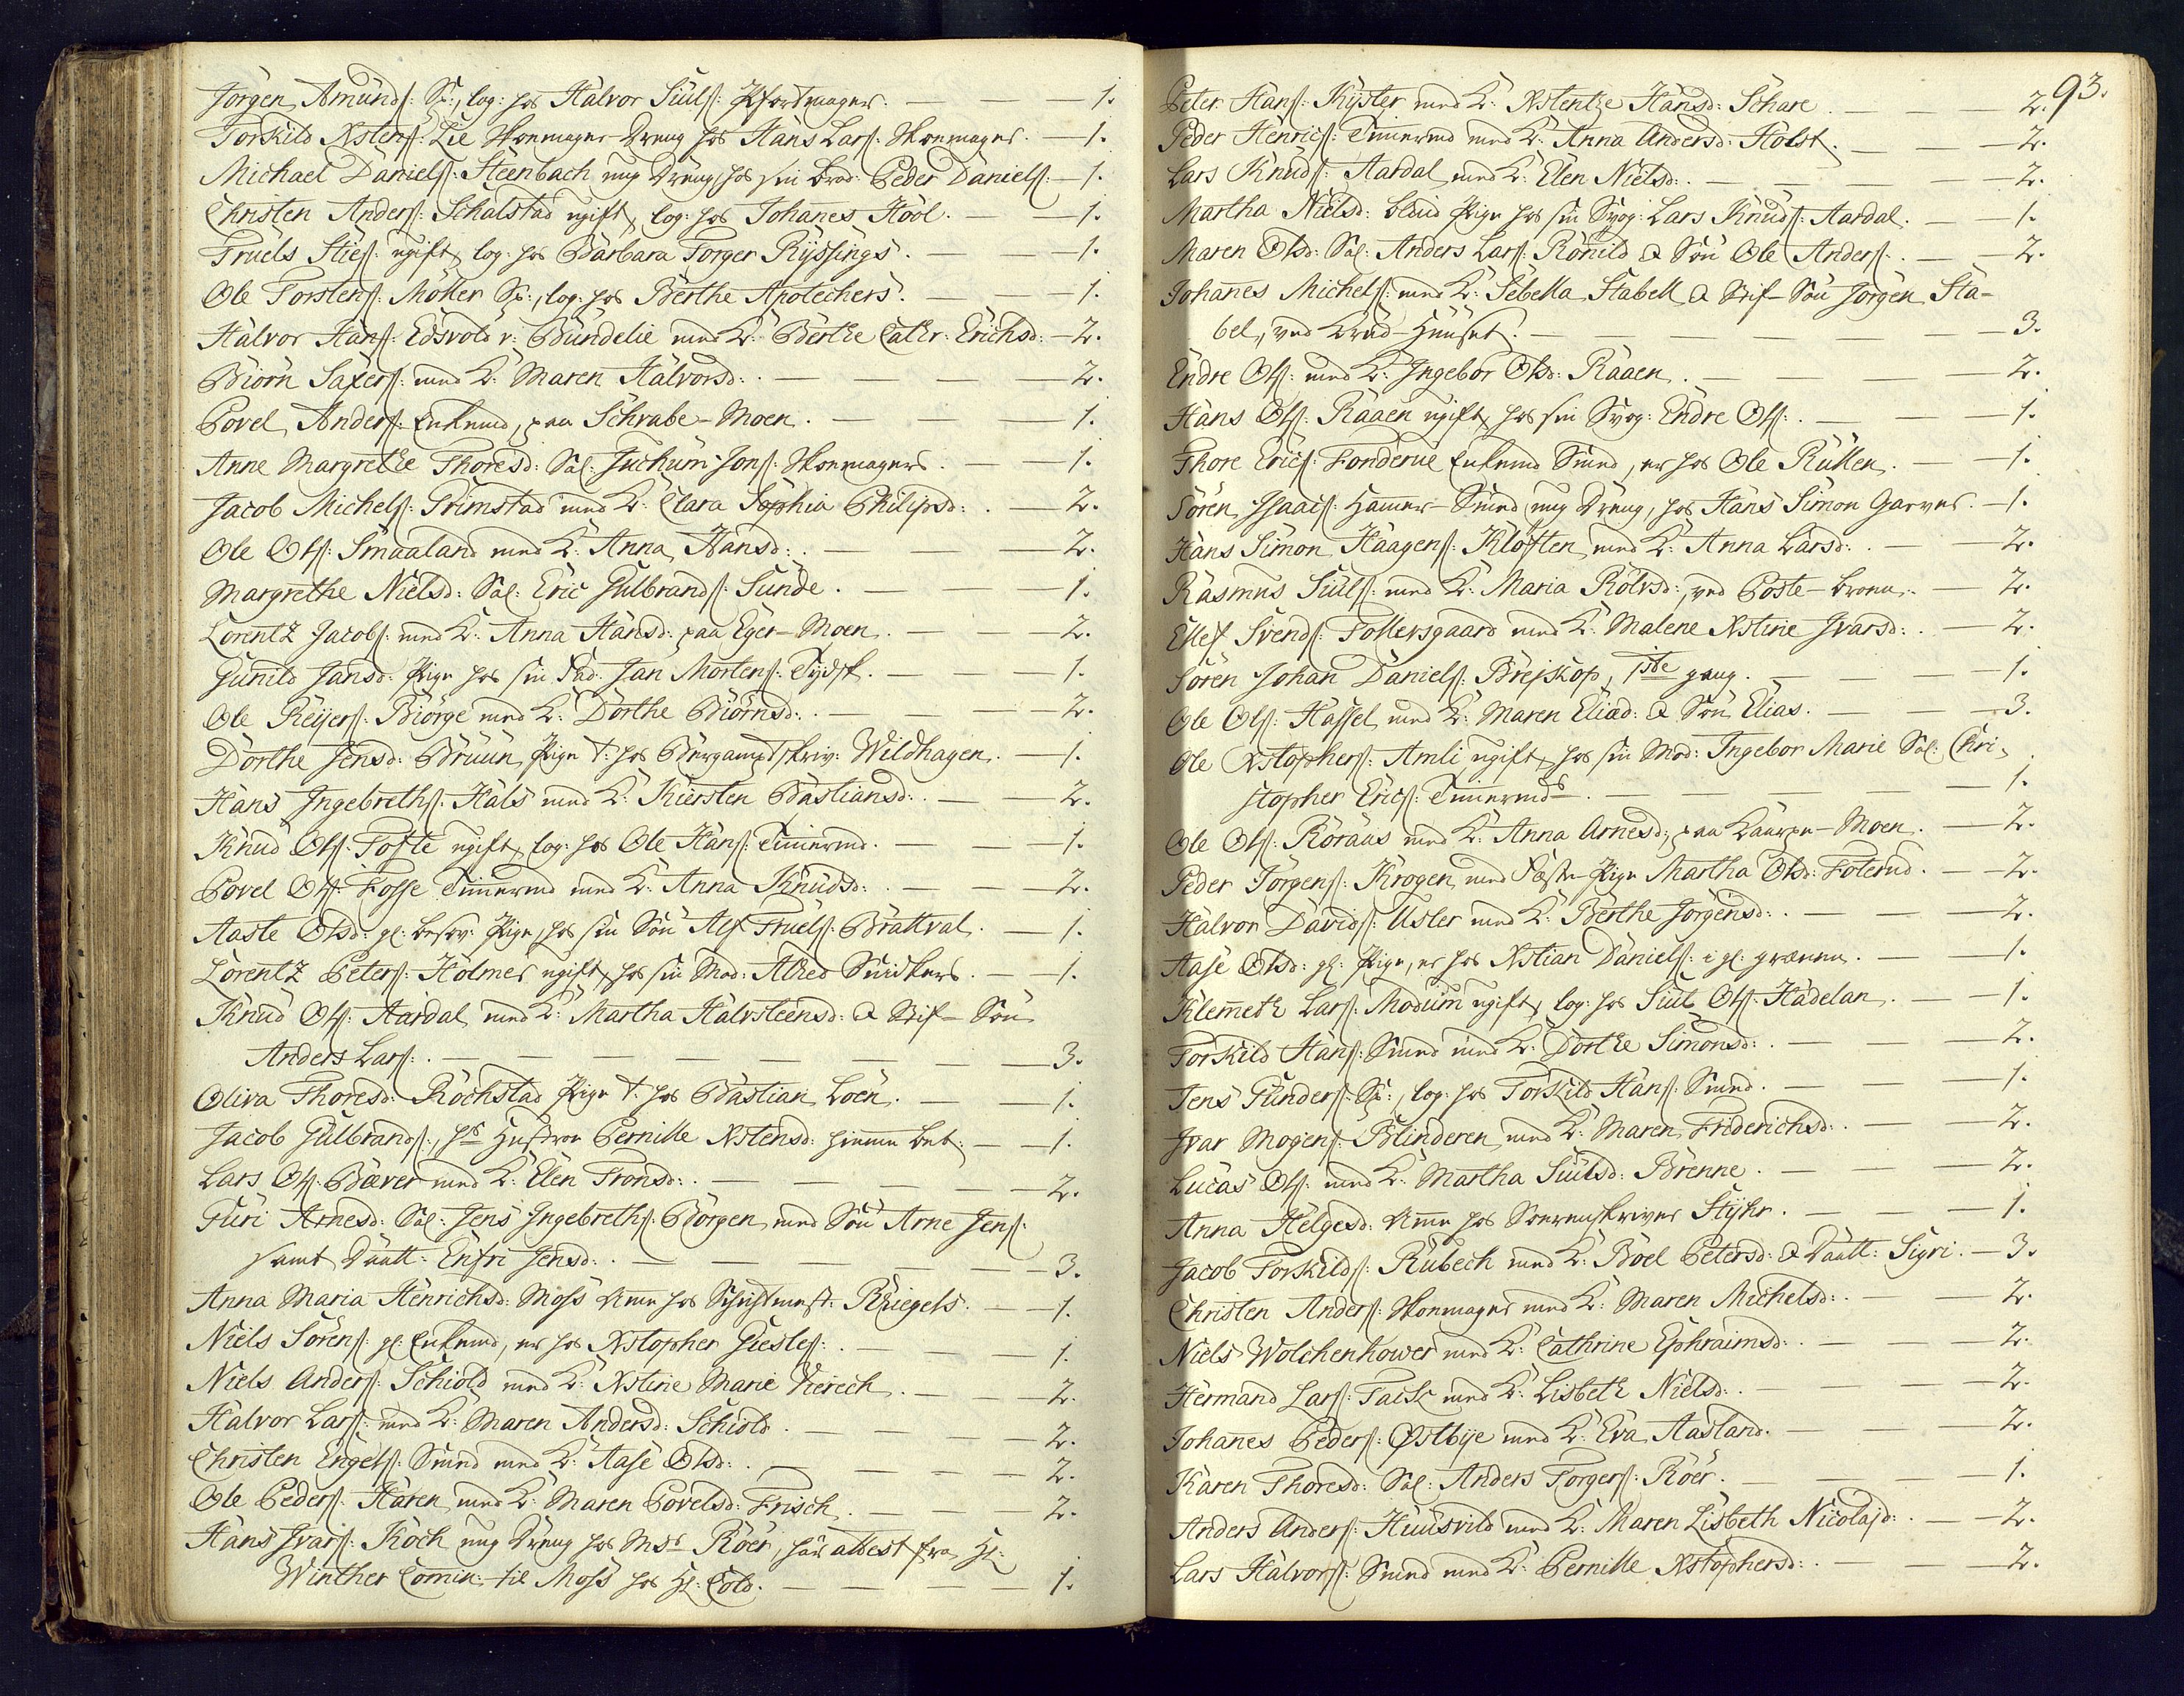 Jörgen Amunds: Sp:, log: hos Halvor Siuls: 1.
Torkild Xstens: Lie Skoemager Dreng hos Hans Lars: Skoemager. 1.
Michael Daniels: Steenbach ung Dreng hos sin Brod: Peder Daniels: 1.
Christen Anders: Schalstad ugift, log: hos Johanes Hool. 1.
Truels Sties: ugift, log: hos Barbara Torger Ryssings. 1.
Ole Torstens: Möller Sp:, log: hos Berthe Apotechers. 1.
Halvor Hans: Edsvold v: Bundelie med K: Berthe Cathr: Erichsd: 2.
Biörn Saxers: med K: Maren Halvorsd: 2.
Povel Anders: Enkemd, paa Schrabe-Moen. 1.
Anne Margrethe Thoresd: Sal: Juchum Jons: Skoemagers. 1.
Jacob Michels: Trimstad med K: Clara Sophia Philipsd: 2.
Ole Ols: Smaaland med K: Anna Hansd: 2.
Margrethe Nielsd: Sal: Eric Gulbrands: Sunde. 1.
Lorentz Jacobs: med K: Anna Hansd: paa Eger-Moen. 2.
Gunild Jansd: Pige hos sin Fad: Jan Mortens: Tydsk. 1.
Ole Reijers: Biörge med K: Dorthe Biörnsd: 2.
Dorthe Jensd: Bruun, Pige t: hos Bergamptskriv: Wildhagen. 1.
Hans Ingebreths: Hals med K: Kiersten Bastiansd: 2.
Knud Ols: Tofte ugift, log: hos Ole Hans: Timermd. 1.
Povel Ols: Fosse Timermd med K: Anna Knudsd: 2.
Aaste Olsd: gl: besov: Pige, hos sin Sön Alf Truels: Brattval. 1.
Lorentz Peters: Holmes ugift, hos sin Mod: Alhed Snidkers. 1.
Knud Ols: Aardal med K: Martha Halvsteensd: & Stif-Sön
Anders Lars: 3.
Oliva Thoresd: Rochstad Pige t: hos Bastian Loen. 1.
Jacob Gulbrands:, hs Hustroe Pernille Xstensd: hieme bet: 1.
Lars Ols: Bæver med K: Elen Tronsd: 2.
Guri Arnesd: Sal: Jens Ingebreths: Börgen, med Sön Arne Jens:
samt Daatt: Enfri Jensd: 3.
Anna Maria Henrichsd: Moss Ame hos Schichtmest: Rhiegels. 1.
Niels Sörens: gl: Enkemd, er hos Xstopher Giestes: 1.
Niels Anders: Schiold med K: Xstine Marie Kierech. 2.
Halvor Lars: med K: Maren Andersd: Schiold. 2.
Christen Engels: Smed med K: Aase Olsd: 2.
Ole Peders: Haren med K: Maren Povelsd: Frisch. 2.
Hans Ivars: Koch ung Dreng hos Msr Röer, har attest fra Hl:
Winther Comin: til Moss hos Hl: Cold. 1.
93.
Peter Hans: Kyster med K: Xstentze Hansd: Schare 2.
Peder Henrics: Timermd med K: Anna Andersd: Holst. 2.
Lars Knuds: Aardal med K: Elen Nielsd: 2.
Martha Nielsd: blind Pige hos sin Svog: Lars Knuds: Aardal. 1.
Maren Olsd: Sal: Anders Lars: Rönild & Sön Ole Anders: 2.
Johanes Michels: med K: Sebella Stabell & Stif-Sön Jörgen Sta-
bel, ved Bräd-Huuset. 3.
Endre Ols: med K: Ingebor Olsd: Raaen. 2.
Hans Ols: Raaen ugift, hos sin Svog: Endre Ols: 1.
Thore Erics: Fonderue Enkemd Smed, er hos Ole Rullen. 1.
Sören Isaacs: Hamer-Smed, ung Dreng, hos Hans Simon Garver. 1.
Hans Simon Haagens: Klöften med K: Anna Larsd: 2.
Rasmus Siuls: med K: Maria Rolvsd:, ved Poste-broen. 2.
Ellef Svends: Follersgaard med K: Malene Xstine Ivarsd: 2.
Sören Johan Daniels: Brejskop, 1ste gang. 1.
Ole Ols: Hassel med K: Maren Eliæd: & Sön Elias. 3.
Ole Xstophers: Amli ugift, hos sin Mod: Ingebor Marie Sal: Chri-
stopher Erics: Timermds. 1.
Ole Ols: Röraas med K: Anna Arnesd:, paa Laurpe-Moen. 2.
Peder Jörgens: Krogen, med Fæste Pige Martha Olsd: Foterud. 2.
Halvor Davids: Usler med K: Berthe Jörgensd: 2.
Aase Olsd: gl: Pige, er hos Xstian Daniels: i gl: 1.
Klemeth Lars: Modum ugift, log: hos Siul Ols: Hadelan. 1.
Torkild Hans: Smed med K: Dorthe Simonsd: 2.
Jens Gunders: Sp:, log: hos Torkild Hans: Smed. 1.
Ivar Mogens: Blinderen med K: Maren Friderichsd: 2.
Lucas Ols: med K: Martha Siulsd: Brenne. 2.
Anna Helgesd: Ame hos Sorenskriver Styhr. 1.
Jacob Torkilds: Rubech med K: Boel Petersd: & Daatt: Sigri. 3.
Christen Anders: Skoemager med K: Maren Michelsd: 2.
Niels Wolchenhower med K: Cathrine Ephraimsd: 2.
Hermand Lars: Faish med K: Lisbeth Nielsd: 2.
Johanes Peders: Østbye med K: Eva Aasland. 2.
Karen Thoresd: Sal: Anders Torgers: Röer. 1.
Anders Anders: Huusvild med K: Maren Lisbeth Nicolajd: 2.
Lars Halvors: Smed med K: Pernille Xstophersd: 2.